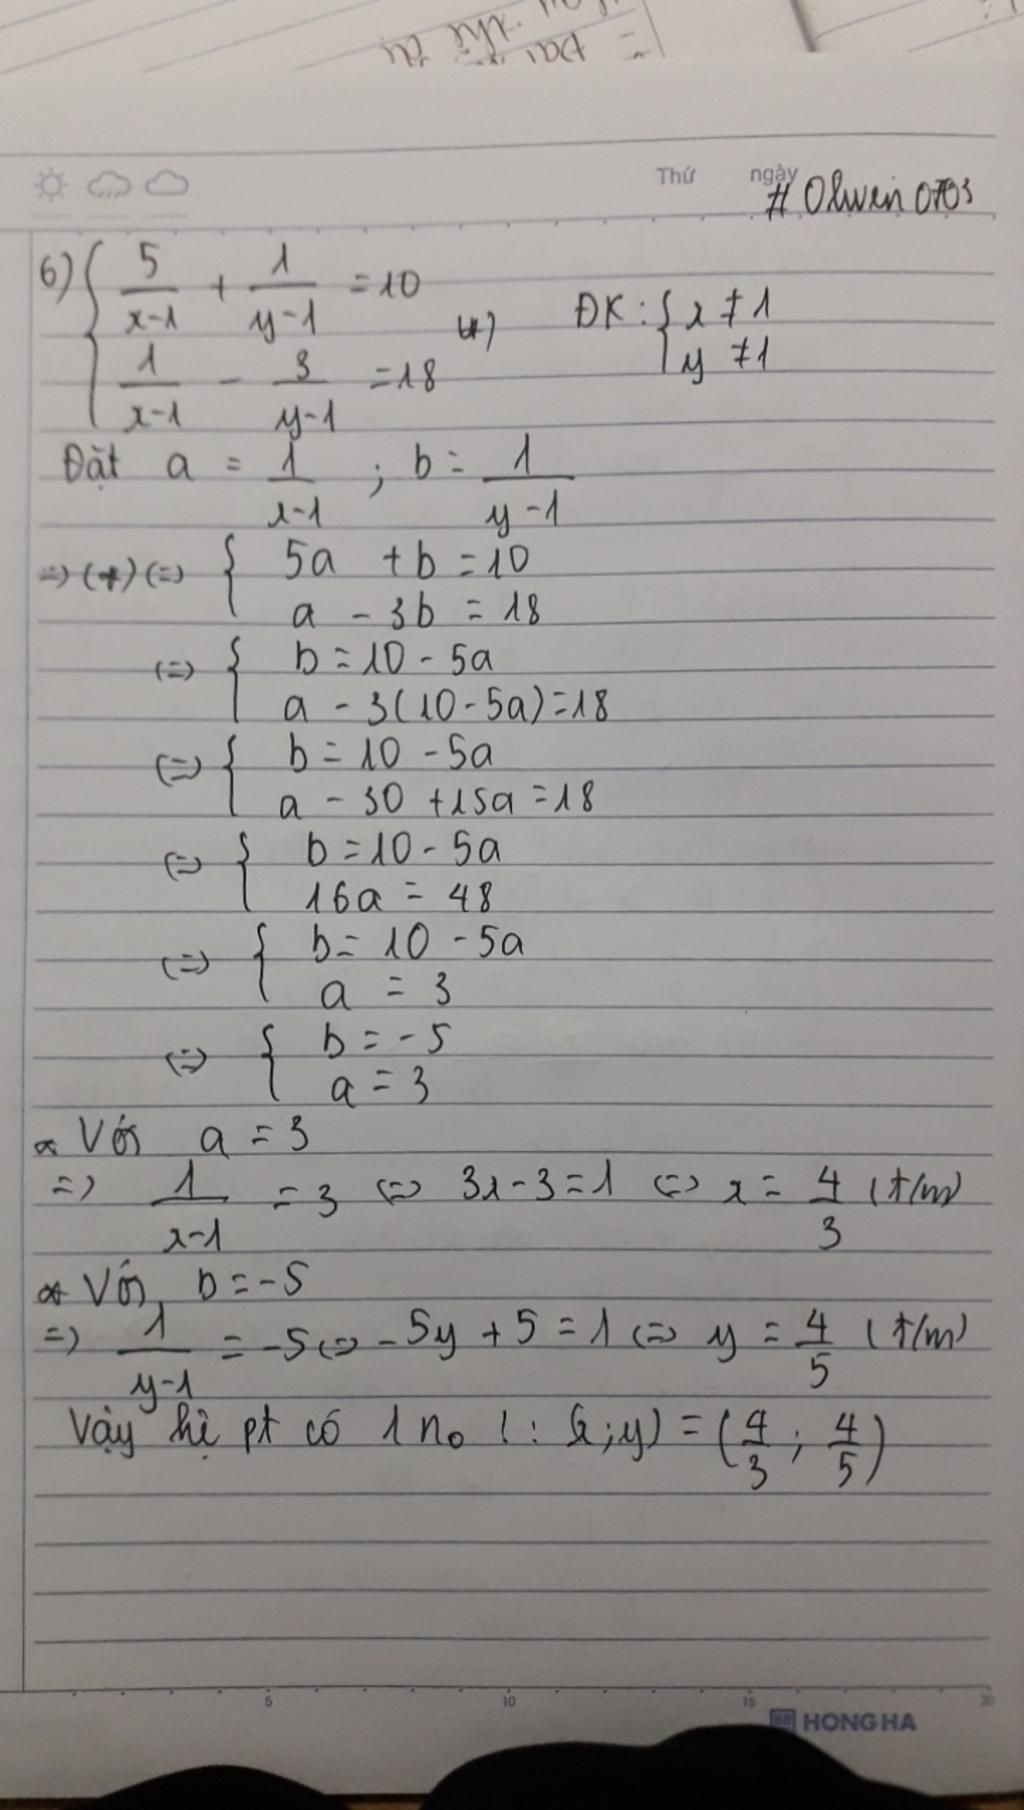 = Đại
Thứ ngày
# Olwen0703
6) { 5/(x-1) + 1/(y-1) = 10
(*) ĐK: { x ≠ 1
y ≠ 1
1/(x-1) - 3/(y-1) = 18
Đặt a = 1/(x-1) ; b = 1/(y-1)
=> (*) (=) { 5a + b = 10
a - 3b = 18
(=) { b = 10 - 5a
a - 3(10 - 5a) = 18
(=) { b = 10 - 5a
a - 30 + 15a = 18
(=) { b = 10 - 5a
16a = 48
(=) { b = 10 - 5a
a = 3
(=) { b = -5
a = 3
* Với a = 3
=> 1/(x-1) = 3 (=) 3x - 3 = 1 (=) x = 4/3 (t/m)
* Với b = -5
=> 1/(y-1) = -5 (=) -5y + 5 = 1 (=) y = 4/5 (t/m)
Vậy hệ pt có 1 no ! : (x;y) = (4/3 ; 4/5)
5 10 15 20
HH HONG HA